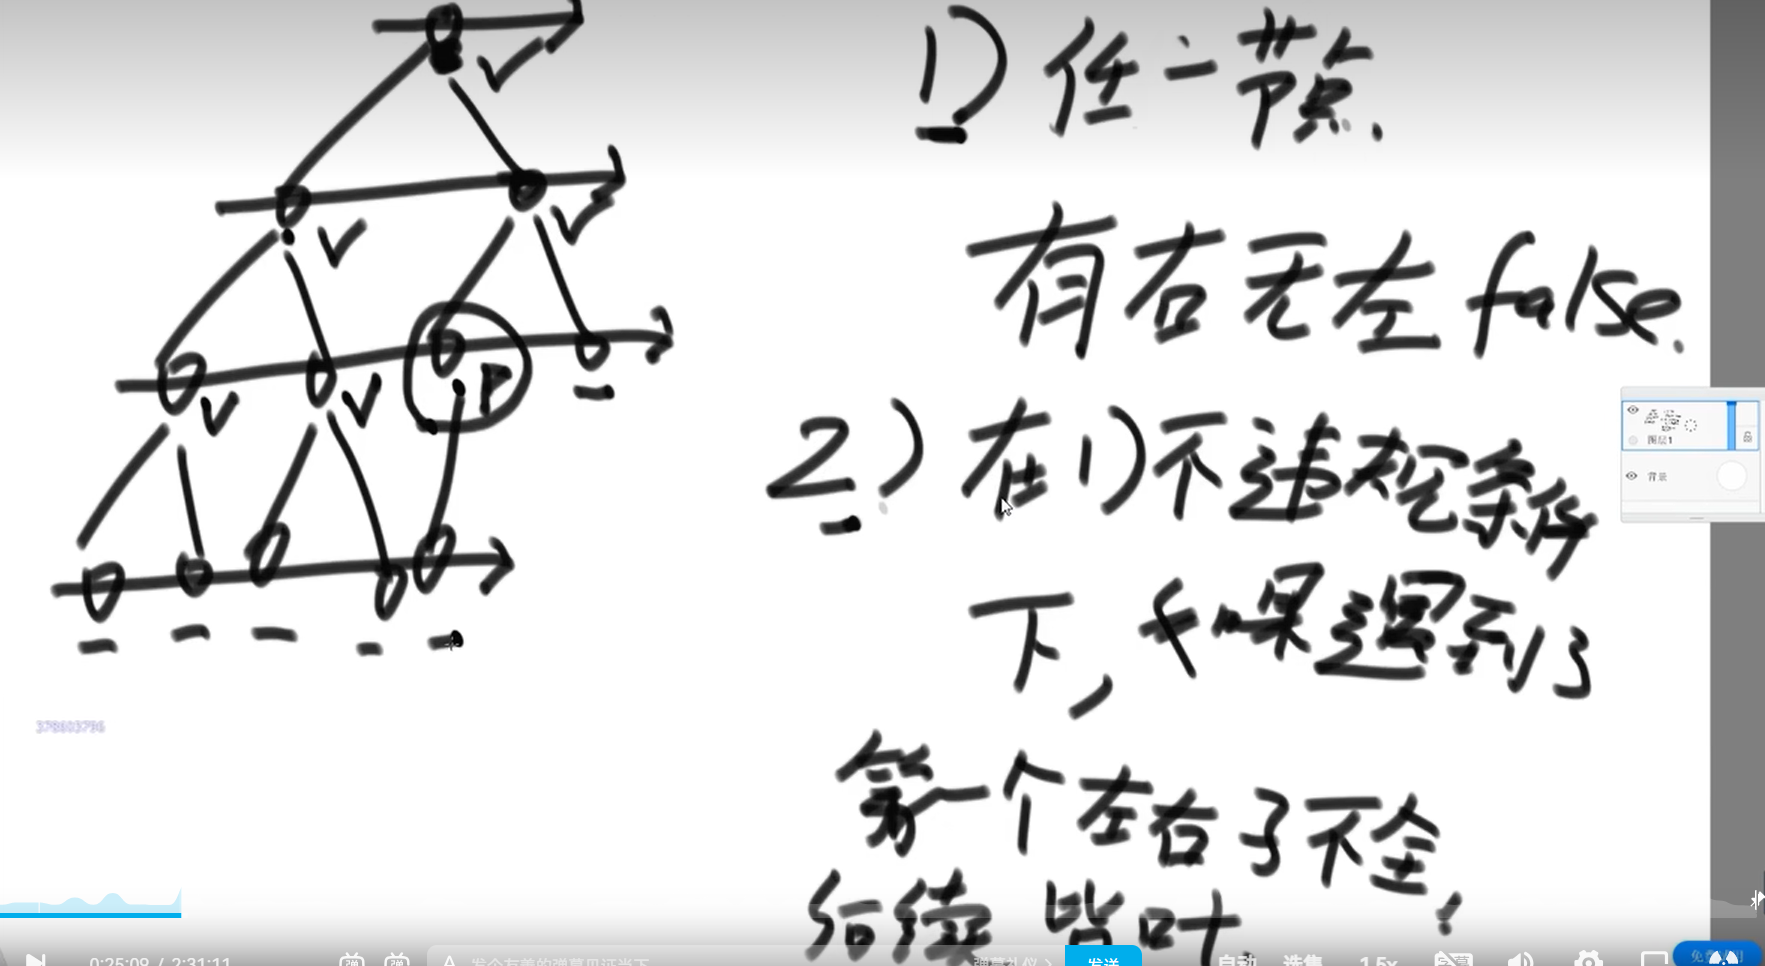 1) 任一节点.
有右无左 false.
2) 在1)不违规条件
下，如果遇到了
第一个左右子不全，
后续皆叶
P
图层1
背景
378603796
0:25:09 / 2:31:11
发个友善的弹幕见证当下
弹幕礼仪 >
发送
自动
选集
1.5x